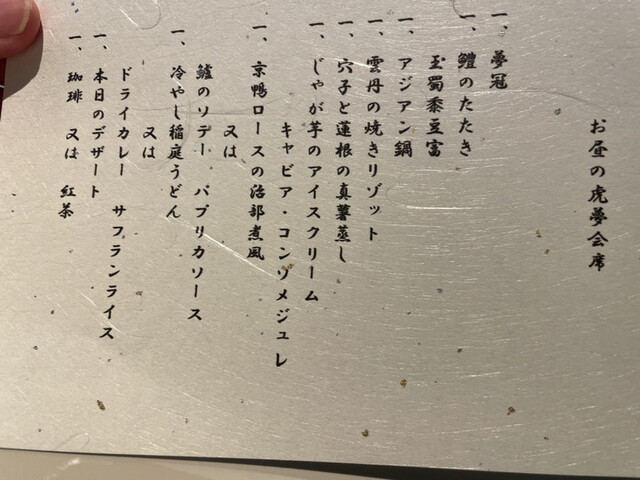 お昼の虎夢会席
一、夢冠
一、鱧のたたき
玉蜀黍豆富
一、アジアン鍋
一、雲丹の焼きリゾット
一、穴子と蓮根の真薯蒸し
一、じゃが芋のアイスクリーム
キャビア・コンソメジュレ
一、京鴨ロースの治部煮風
又は
鱸のソテー パプリカソース
一、冷やし稲庭うどん
又は
ドライカレー サフランライス
一、本日のデザート
一、珈琲 又は 紅茶